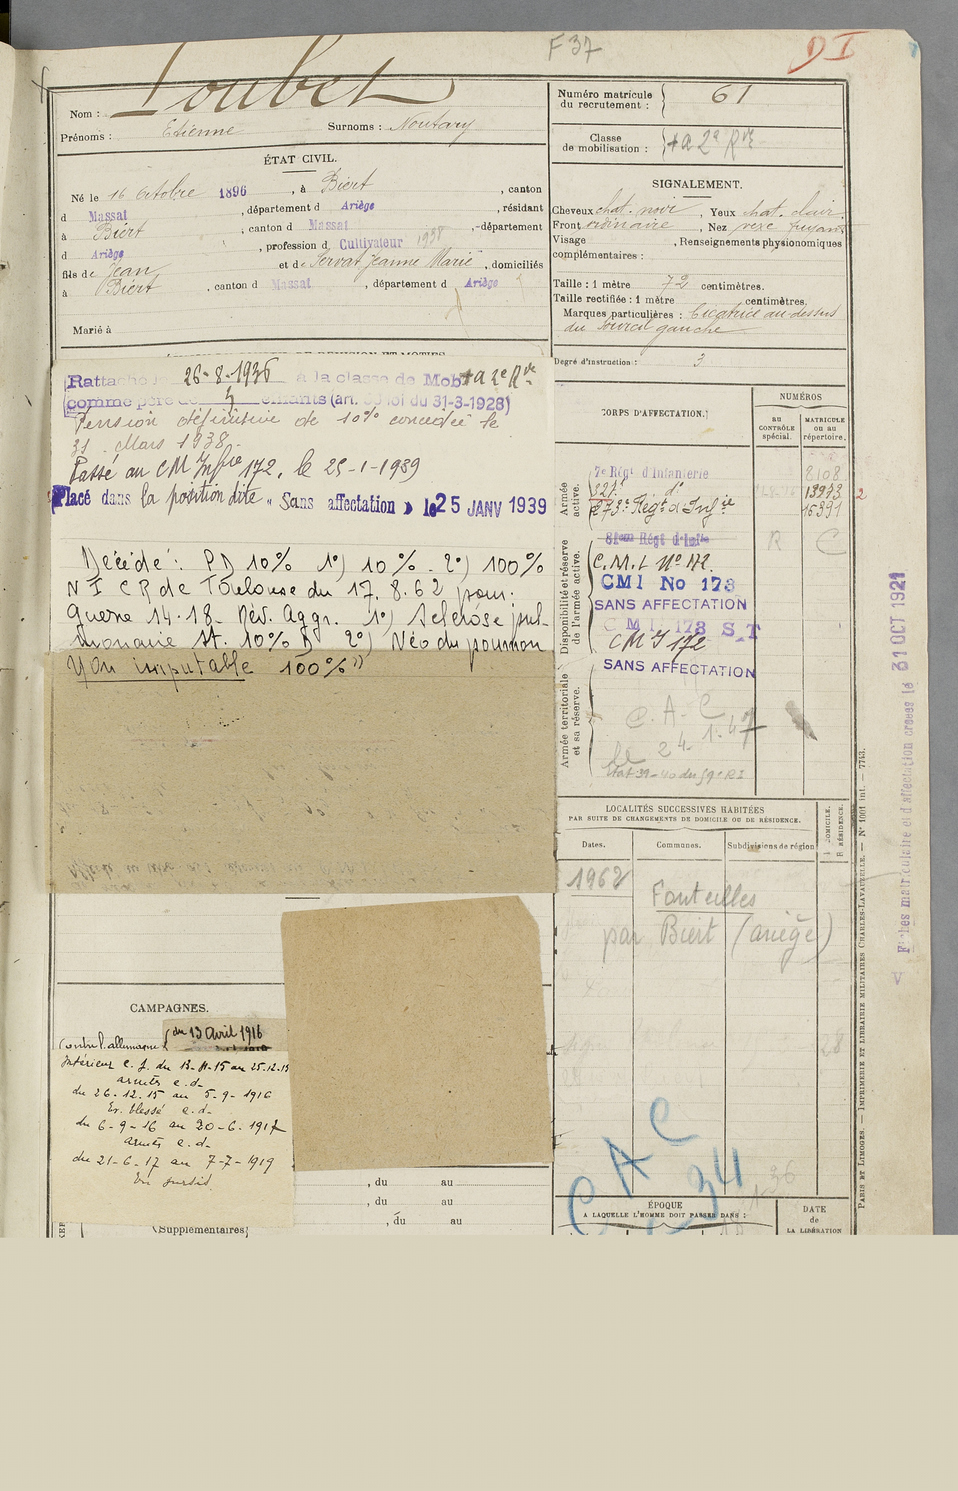 F 37
D I
Nom : Loubet
Prénoms : Etienne Surnoms : Noutary
ÉTAT CIVIL.
Né le 16 Octobre 1896, à Biert, canton
d Massat, département d Ariège, résidant
à Biert, canton d Massat, département
d Ariège, profession d Cultivateur 1938
fils de Jean et de Servat Jeanne Marie, domiciliés
à Biert, canton d Massat, département d Ariège
Marié à
Rattaché le 26-8-1936 à la classe de Mob
comme père de 4 enfants (art. loi du 31-3-1928)
Pension définitive de 10% concédée le
31 Mars 1938.
Passé au CM Infrie 172, le 25-1-1939
Placé dans la position dite « Sans affectation » le 25 JANV 1939
Décédé : PD 10% 1°) 10% - 2°) 100%
N I CR de Toulouse du 17.8.62 pour.
Guerre 14-18- Rév. Aggr. 1°) Sclérose pul-
monaire st. 10% D 2°) Néo du poumon
Non imputable 100%"
CAMPAGNES.
Contre l'allemagne { du 13 Avril 1916
Intérieur c. s. du 13-4-15 au 25-12-15
armées c.d-
du 26-12.15 au 5-9-1916
Ev. blessé c.d-
du 6-9-16 au 20-6-1917
armées c.d-
du 21-6-17 au 7-7-1919
En sursis
, du au
, du au
, du au
(Supplémentaires)
Numéro matricule du recrutement : 61
Classe de mobilisation : + a 2e Rve
SIGNALEMENT.
Cheveux chat. noir, Yeux chat. clair.
Front ordinaire, Nez vexe fuyant
Visage , Renseignements physionomiques
complémentaires :
Taille : 1 mètre 72 centimètres.
Taille rectifiée : 1 mètre centimètres.
Marques particulières : Cicatrice au-dessus
du sourcil gauche
Degré d'instruction : 3
CORPS D'AFFECTATION.
NUMÉROS
au CONTRÔLE spécial.
MATRICULE ou au répertoire.
Armée active.
7e Régt d'Infanterie 2108
321e do 13973 2
273e Régt d'Infie 15391
Disponibilité et réserve de l'armée active.
81eme Régt d'Infie R C
C.M.I. N° 172.
CMI No 173
SANS AFFECTATION
C M I 173 S.T
CM I 172
SANS AFFECTATION
Armée territoriale et sa réserve.
C. A. C
le 24-1-47
LOCALITÉS SUCCESSIVES HABITÉES
PAR SUITE DE CHANGEMENTS DE DOMICILE OU DE RÉSIDENCE.
Dates. Communes. Subdivisions de région
D. DOMICILE. R. RÉSIDENCE.
1962 Fonteilles
par Biert (ariège)
28
C A C
34
36
ÉPOQUE
A LAQUELLE L'HOMME DOIT PASSER DANS :
DATE
de
LA LIBÉRATION
PARIS ET LIMOGES. — IMPRIMERIE ET LIBRAIRIE MILITAIRES CHARLES-LAVAUZELLE. — N° 1001 int. — 7743.
Fiches matriculaire et d'affectation créées le 31 OCT 1921
V